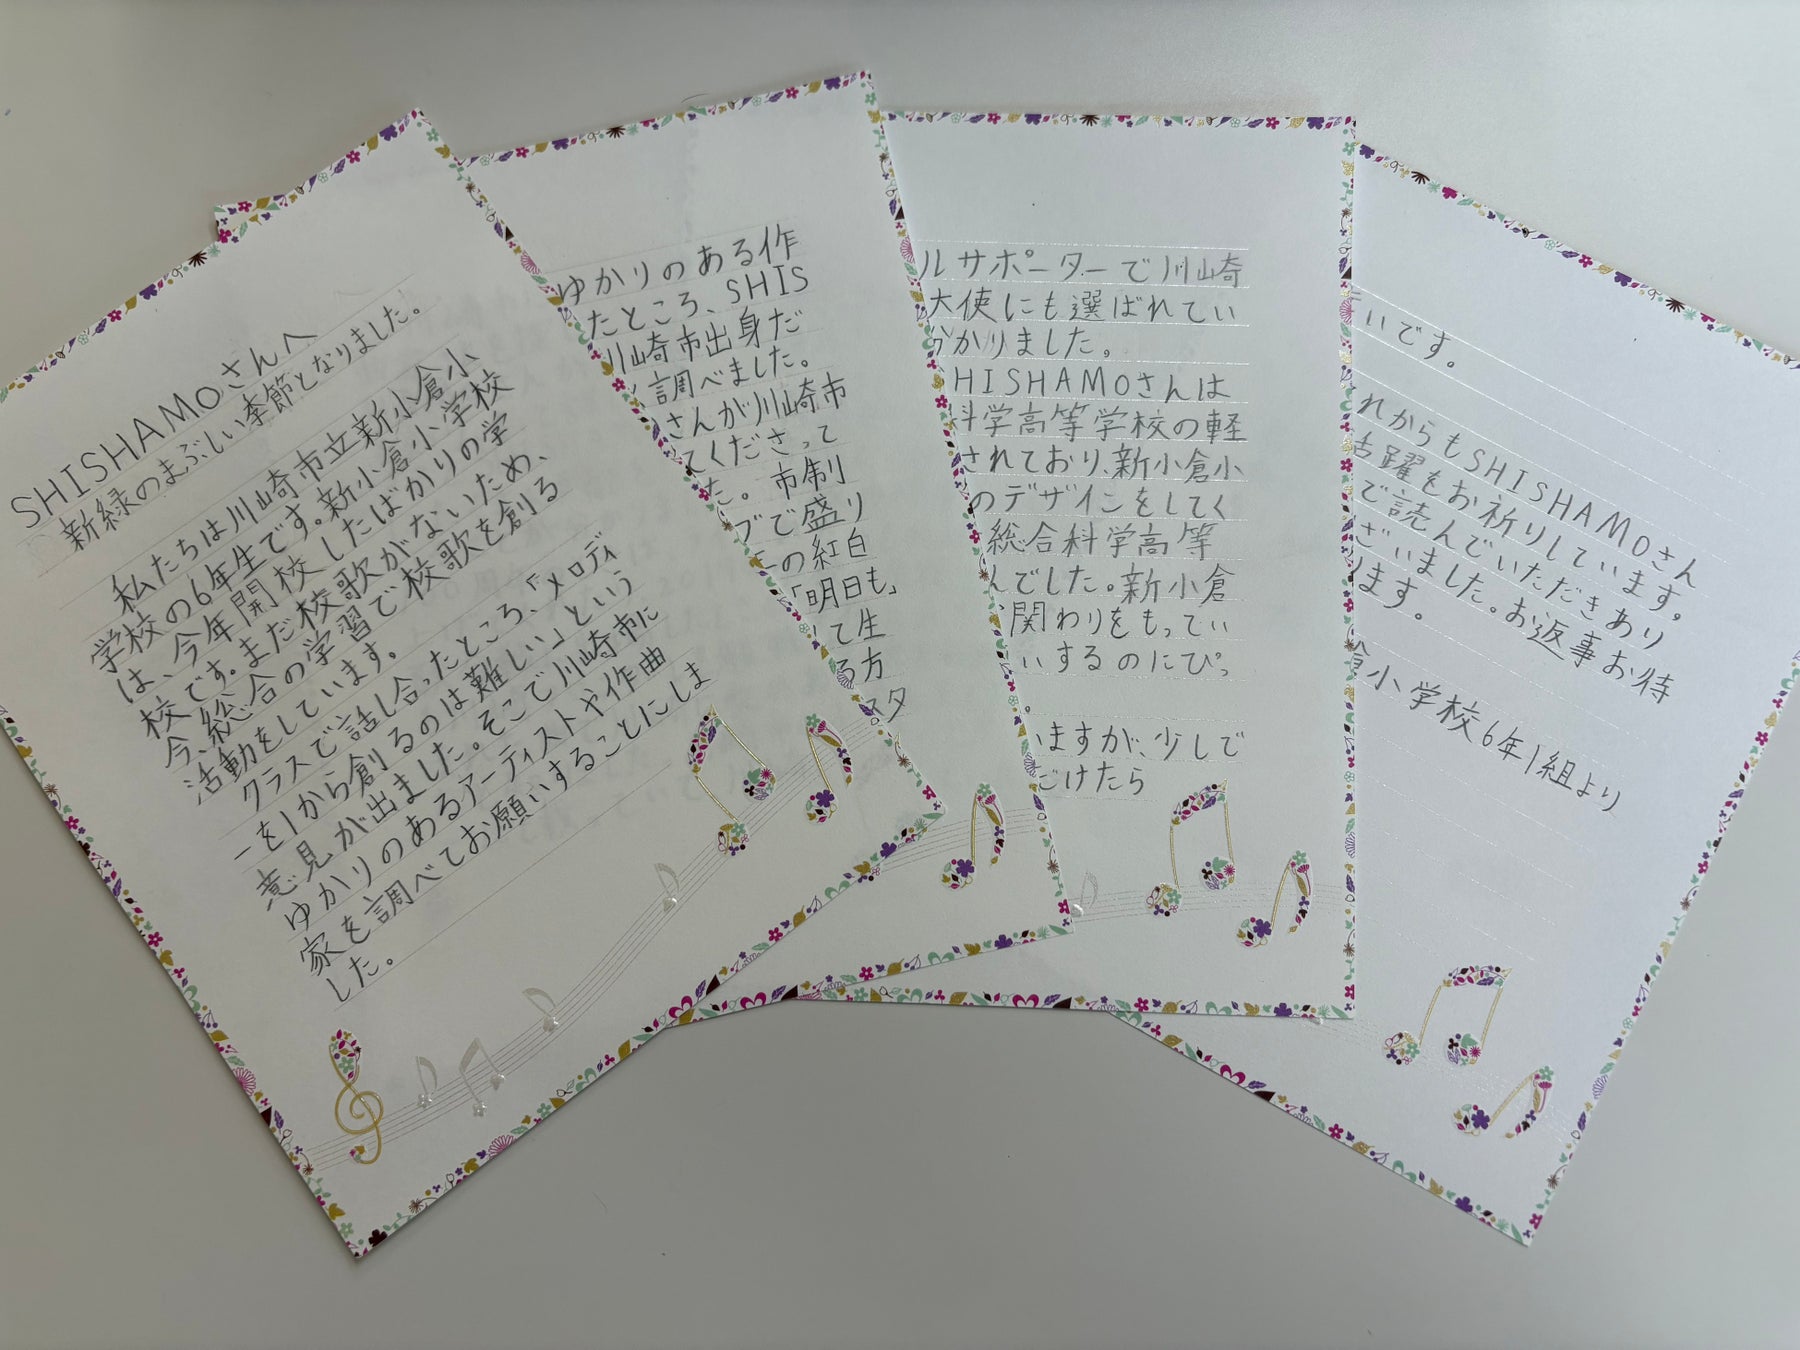 SHISHAMOさんへ
新緑のまぶしい季節となりました。
私たちは川崎市立新小倉小
学校の6年生です。新小倉小学校
は、今年開校したばかりの学
校です。まだ校歌がないため、
今、総合の学習で校歌を創る
活動をしています。
クラスで話し合ったところ、「メロディ
ーを1から創るのは難しい」という
意見が出ました。そこで川崎市に
ゆかりのあるアーティストや作曲
家を調べてお願いすることにしま
した。
ゆかりのある作
たところ、SHIS
川崎市出身だ
調べました。
さんが川崎市
てくださって
た。市制
ブで盛り
の紅白
「明日も」
て生
る方
スタ
ルサポーターで川崎
大使にも選ばれてい
分かりました。
HISHAMOさんは
科学高等学校の軽
されており、新小倉小
のデザインをしてく
総合科学高等
んでした。新小倉
関わりをもってい
いするのにぴっ
。
いますが、少しで
だけたら
いです。
れからもSHISHAMOさん
活躍をお祈りしています。
で読んでいただきあり
ざいました。お返事お待
ります。
倉小学校6年1組より